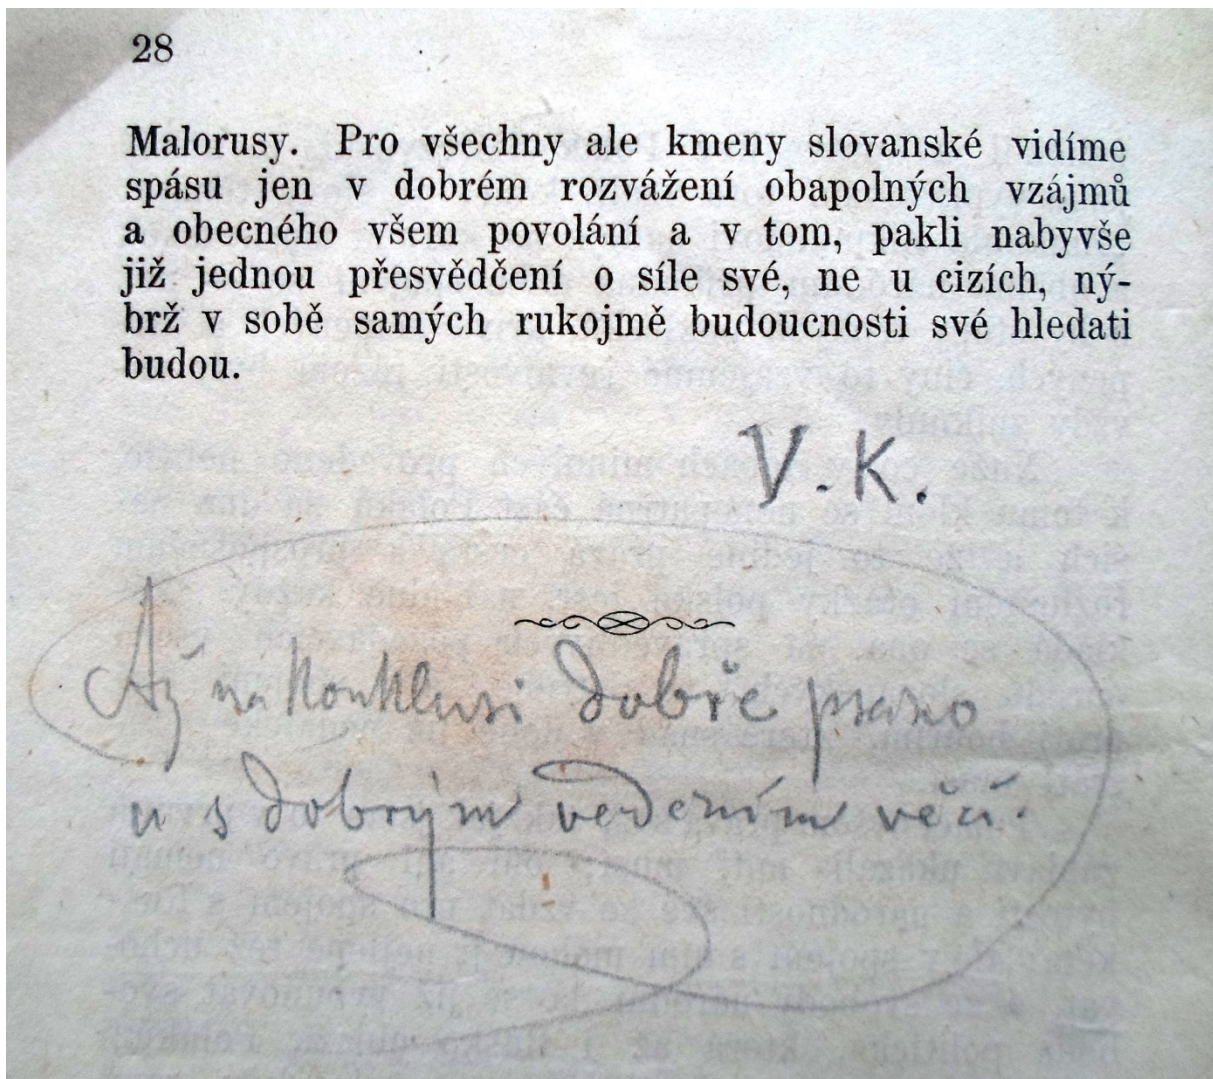 28
Malorusy. Pro všechny ale kmeny slovanské vidíme
spásu jen v dobrém rozvážení obapolných vzájmů
a obecného všem povolání a v tom, pakli nabyvše
již jednou přesvědčení o síle své, ne u cizích, ný-
brž v sobě samých rukojmě budoucnosti své hledati
budou.
V. K.
Až na konklusi dobře psáno
s dobrým vedením věcí.